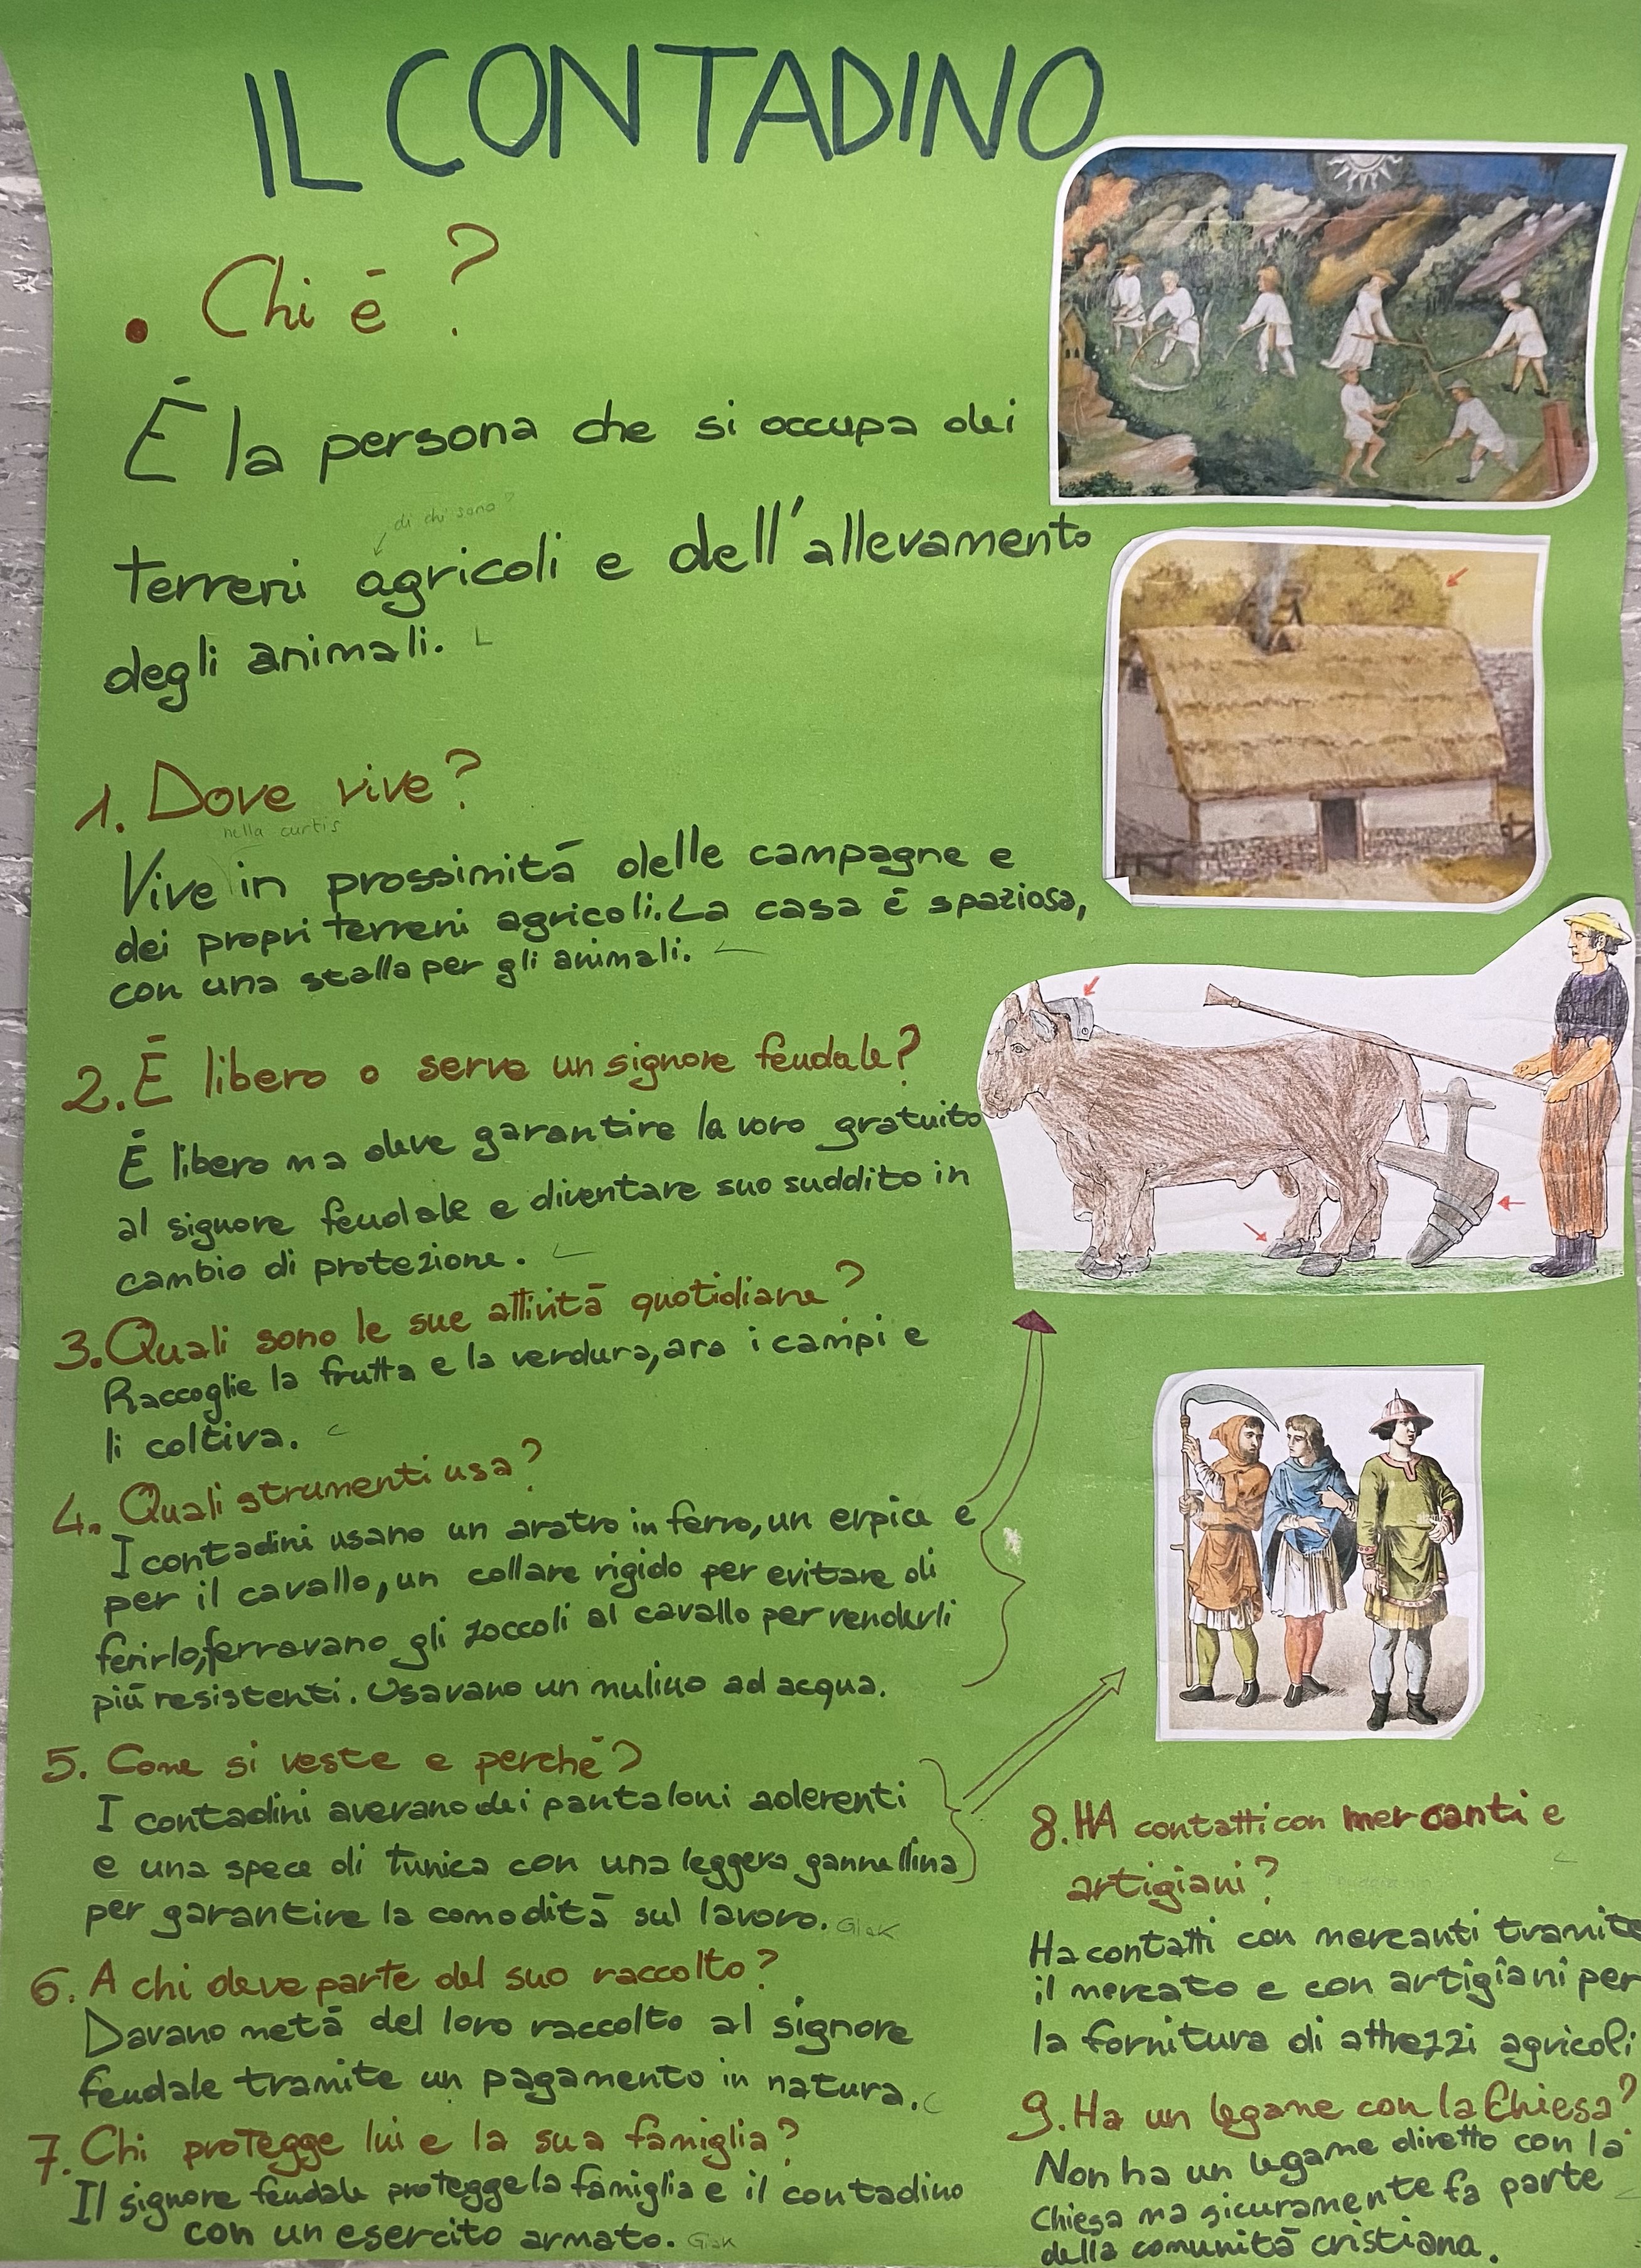 IL CONTADINO
• Chi è?
È la persona che si occupa dei
di chi sono?
terreni agricoli e dell'allevamento
degli animali.
1. Dove vive?
nella curtis
Vive in prossimità delle campagne e
dei propri terreni agricoli. La casa è spaziosa,
con una stalla per gli animali.
2. È libero o serve un signore feudale?
È libero ma deve garantire lavoro gratuito
al signore feudale e diventare suo suddito in
cambio di protezione.
3. Quali sono le sue attività quotidiane?
Raccoglie la frutta e la verdura, ara i campi e
li coltiva.
4. Quali strumenti usa?
I contadini usano un aratro in ferro, un erpice e
per il cavallo, un collare rigido per evitare di
ferirlo, ferravano gli zoccoli al cavallo per renderli
più resistenti. Usavano un mulino ad acqua.
5. Come si veste e perché?
I contadini avevano dei pantaloni aderenti
e una spece di tunica con una leggera gannellina
per garantire la comodità sul lavoro. Giak
6. A chi deve parte del suo raccolto?
Davano metà del loro raccolto al signore
feudale tramite un pagamento in natura.
7. Chi protegge lui e la sua famiglia?
Il signore feudale protegge la famiglia e il contadino
con un esercito armato. Giak
8. HA contatti con mercanti e
artigiani?
Ha contatti con mercanti tramite
il mercato e con artigiani per
la fornitura di attrezzi agricoli
9. Ha un legame con la Chiesa?
Non ha un legame diretto con la
Chiesa ma sicuramente fa parte
della comunità cristiana.